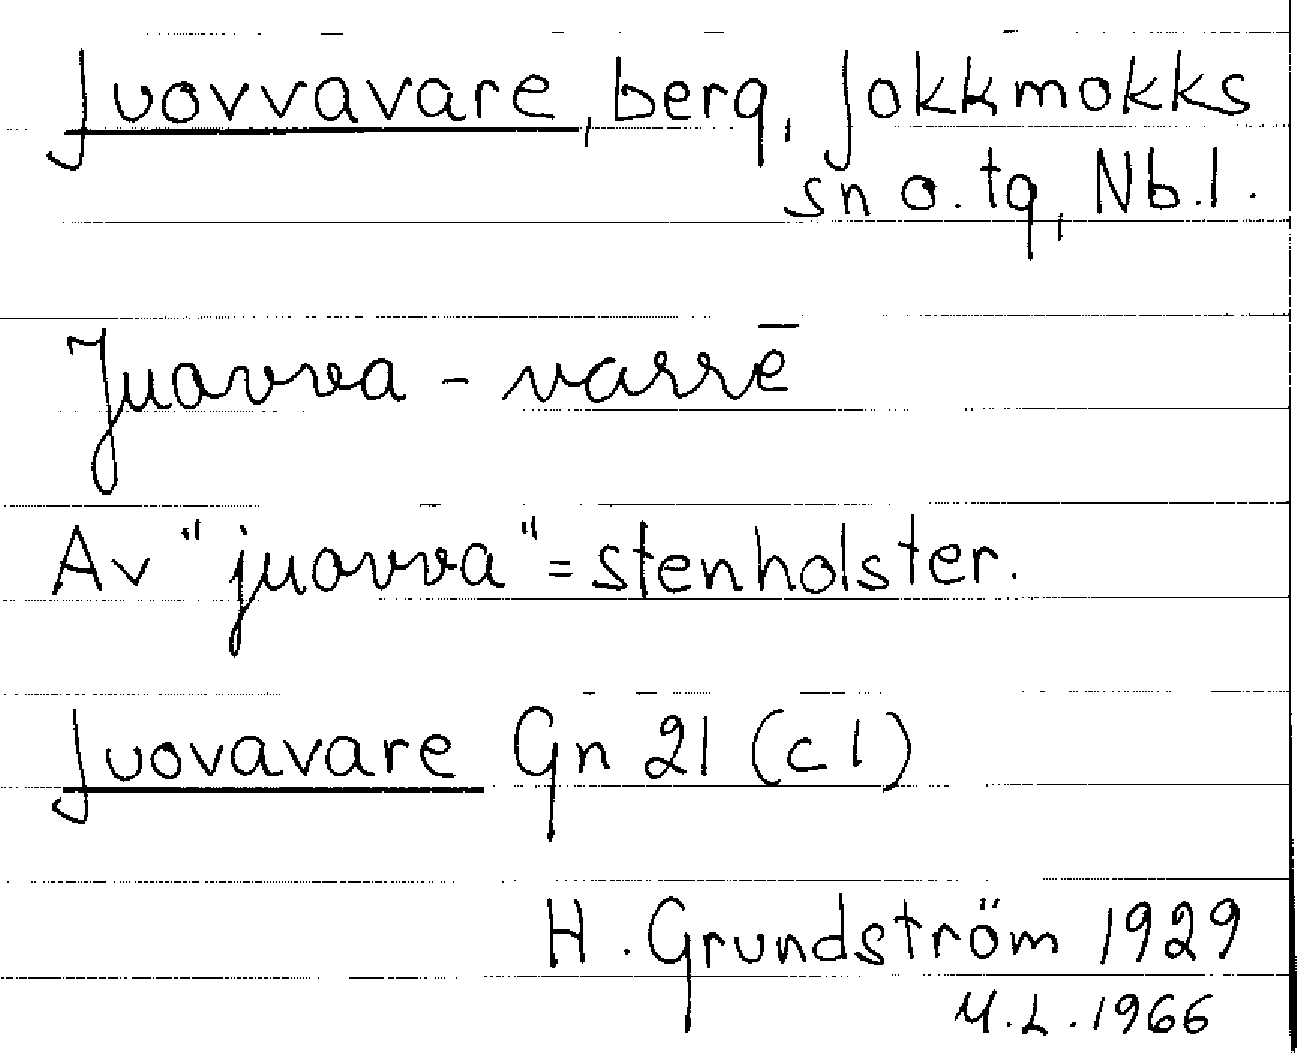 Juovvavare, berg, Jokkmokks
sn o. tg, Nb.l.
Juovva - varrē
Av "juovva" = stenholster.
Juovavare Gn 21 (c 1)
H. Grundström 1929
M.L. 1966